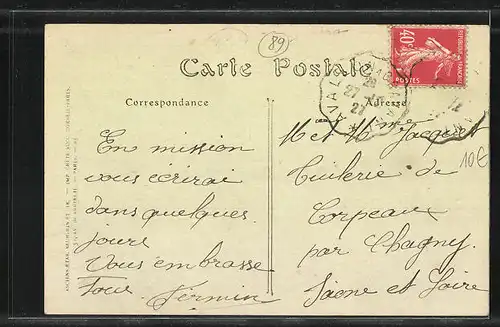 89
Carte Postale
Correspondance
Adresse
40c
REPUBLIQUE FRANÇAISE
POSTES
AVAL
27
27
10€
En mission
vous écrirai
dans quelques
jours
Vous embrasse
Tous. Fermin
M et Mme Jacquet
Tuilerie de
Corpeau
par Chagny
Saone et Loire